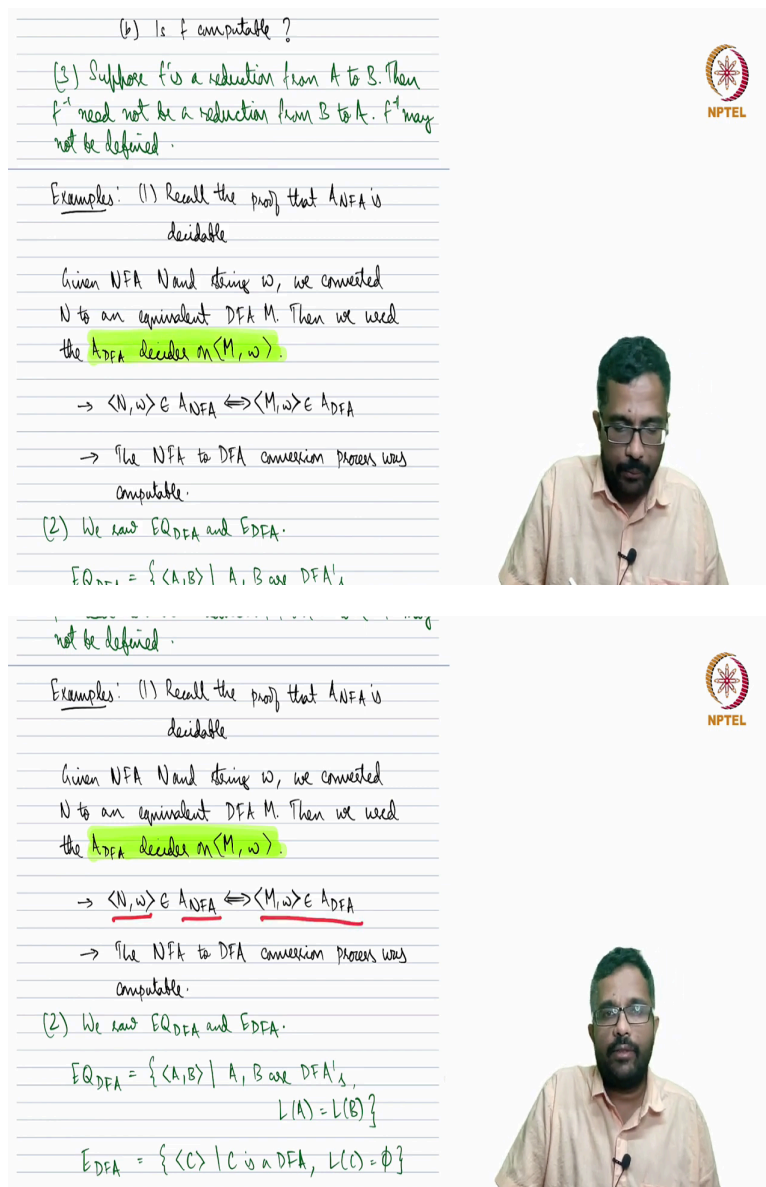 (b) Is f computable ?
(3) Suppose f is a reduction from A to B. Then
f⁻¹ need not be a reduction from B to A. f⁻¹ may
not be defined.
NPTEL
Examples: (1) Recall the proof that A_NFA is
decidable
Given NFA N and string w, we converted
N to an equivalent DFA M. Then we used
the A_DFA decider on ⟨M, w⟩.
→ ⟨N, w⟩ ∈ A_NFA ⟺ ⟨M, w⟩ ∈ A_DFA
→ The NFA to DFA conversion process was
computable.
(2) We saw EQ_DFA and E_DFA.
EQ_DFA = {⟨A,B⟩ | A, B are DFA's
not be defined.
NPTEL
Examples: (1) Recall the proof that A_NFA is
decidable
Given NFA N and string w, we converted
N to an equivalent DFA M. Then we used
the A_DFA decider on ⟨M, w⟩.
→ ⟨N, w⟩ ∈ A_NFA ⟺ ⟨M, w⟩ ∈ A_DFA
→ The NFA to DFA conversion process was
computable.
(2) We saw EQ_DFA and E_DFA.
EQ_DFA = {⟨A,B⟩ | A, B are DFA's,
L(A) = L(B)}
E_DFA = {⟨C⟩ | C is a DFA, L(C) = ϕ}